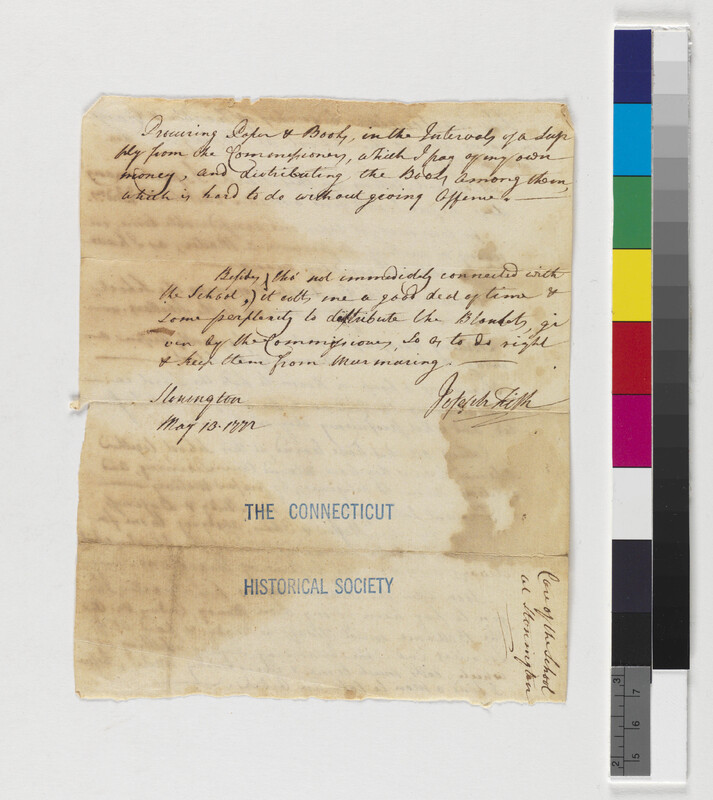 Procuring Paper & Books, in the Intervals of a Sup
ply from the Commissioners, which I pay of my own
money, and distributing the Books among them,
which is hard to do without giving Offence. —
Besides, (tho' not immediately connected with
the School,) it costs me a good deal of time &
some perplexity to distribute the Blankets, gi
ven by the Commissioners, So as to do right
& keep them from Murmuring. —
Stonington
Joseph Fish
May 13. 1772
THE CONNECTICUT
HISTORICAL SOCIETY
Care of the School
at Stonington
3
2
7
6
5